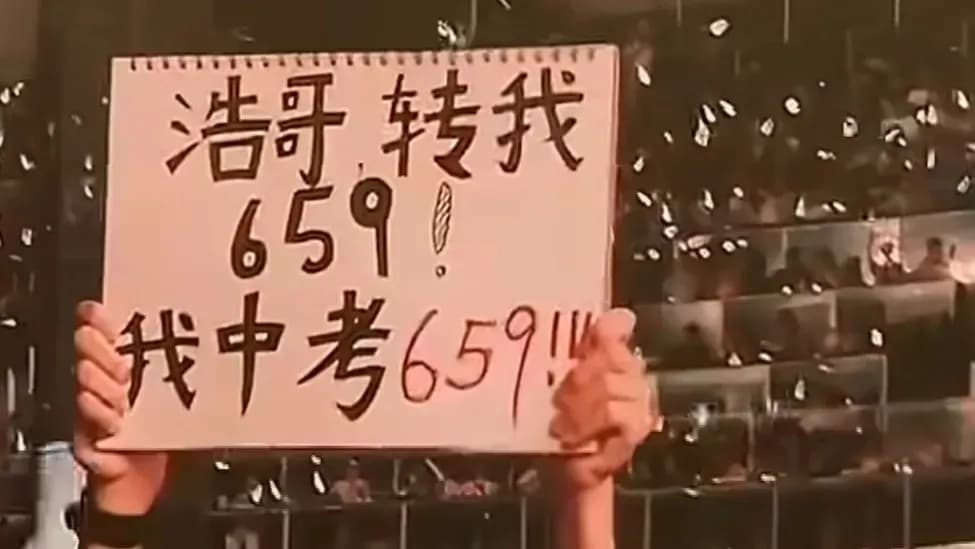 浩哥,转我
659!
我中考659!!!